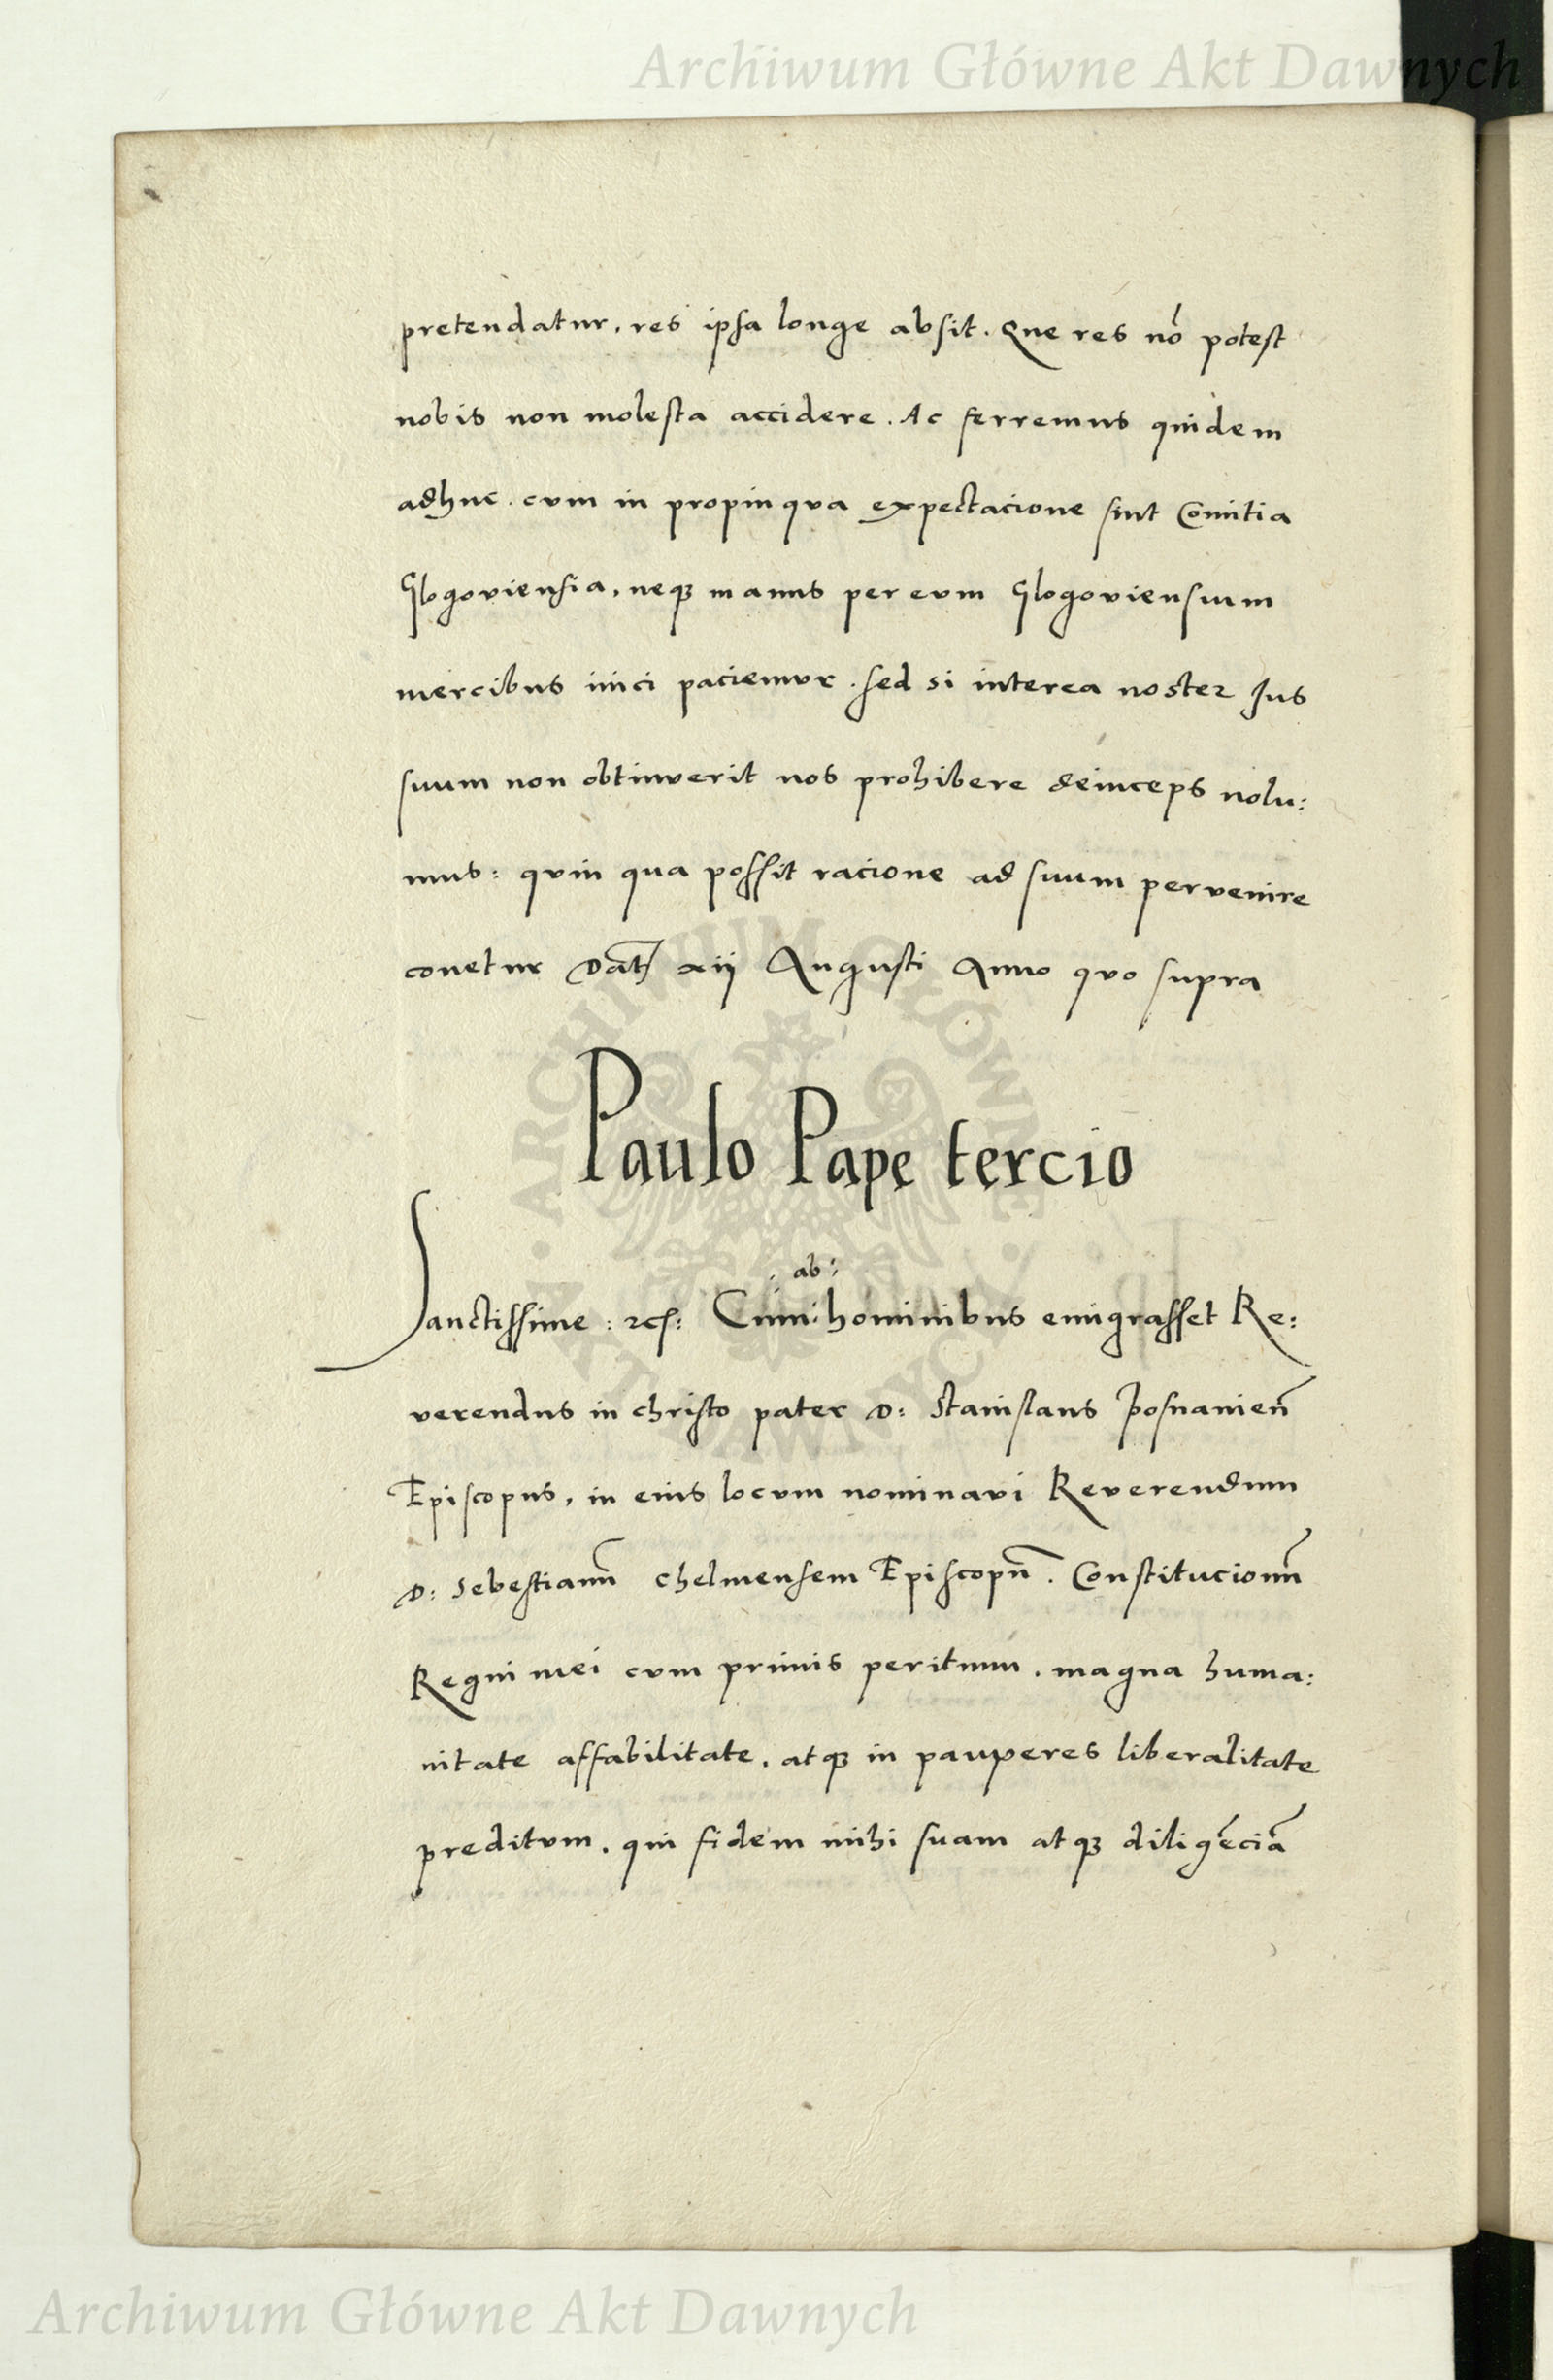 Archiwum Główne Akt Dawnych
pretendatur. res ipsa longe absit. Que res nõ potest
nobis non molesta accidere. Ac ferremus quidem
adhuc. cum in propinqua expectacione sint Comitia
Glogoviensia, neqꝫ manus per eum Glogoviensium
mercibus iniici paciemur. sed si interea noster Jus
suum non obtinuerit nos prohibere deinceps nolu:
mus: quin qua possit racione ad suum pervenire
conetur Dat̃ xij Augusti Anno quo supra
Paulo Pape tercio
ab:
Sanctissime: ⁊c̃: Cum: hominibus emigrasset Re:
verendus in christo pater D: Stanislaus Posnanien̄
Episcopus, in eius locum nominavi Reverendum
D: Sebestianũ chelmensem Episcopũ. Constitucionũ
Regni mei cum primis peritum. magna huma:
nitate affabilitate, atqꝫ in pauperes liberalitate
preditum. qui fidem mihi suam atqꝫ diligẽciã
ARCHIWUM GŁÓWNE AKT DAWNYCH
Archiwum Główne Akt Dawnych